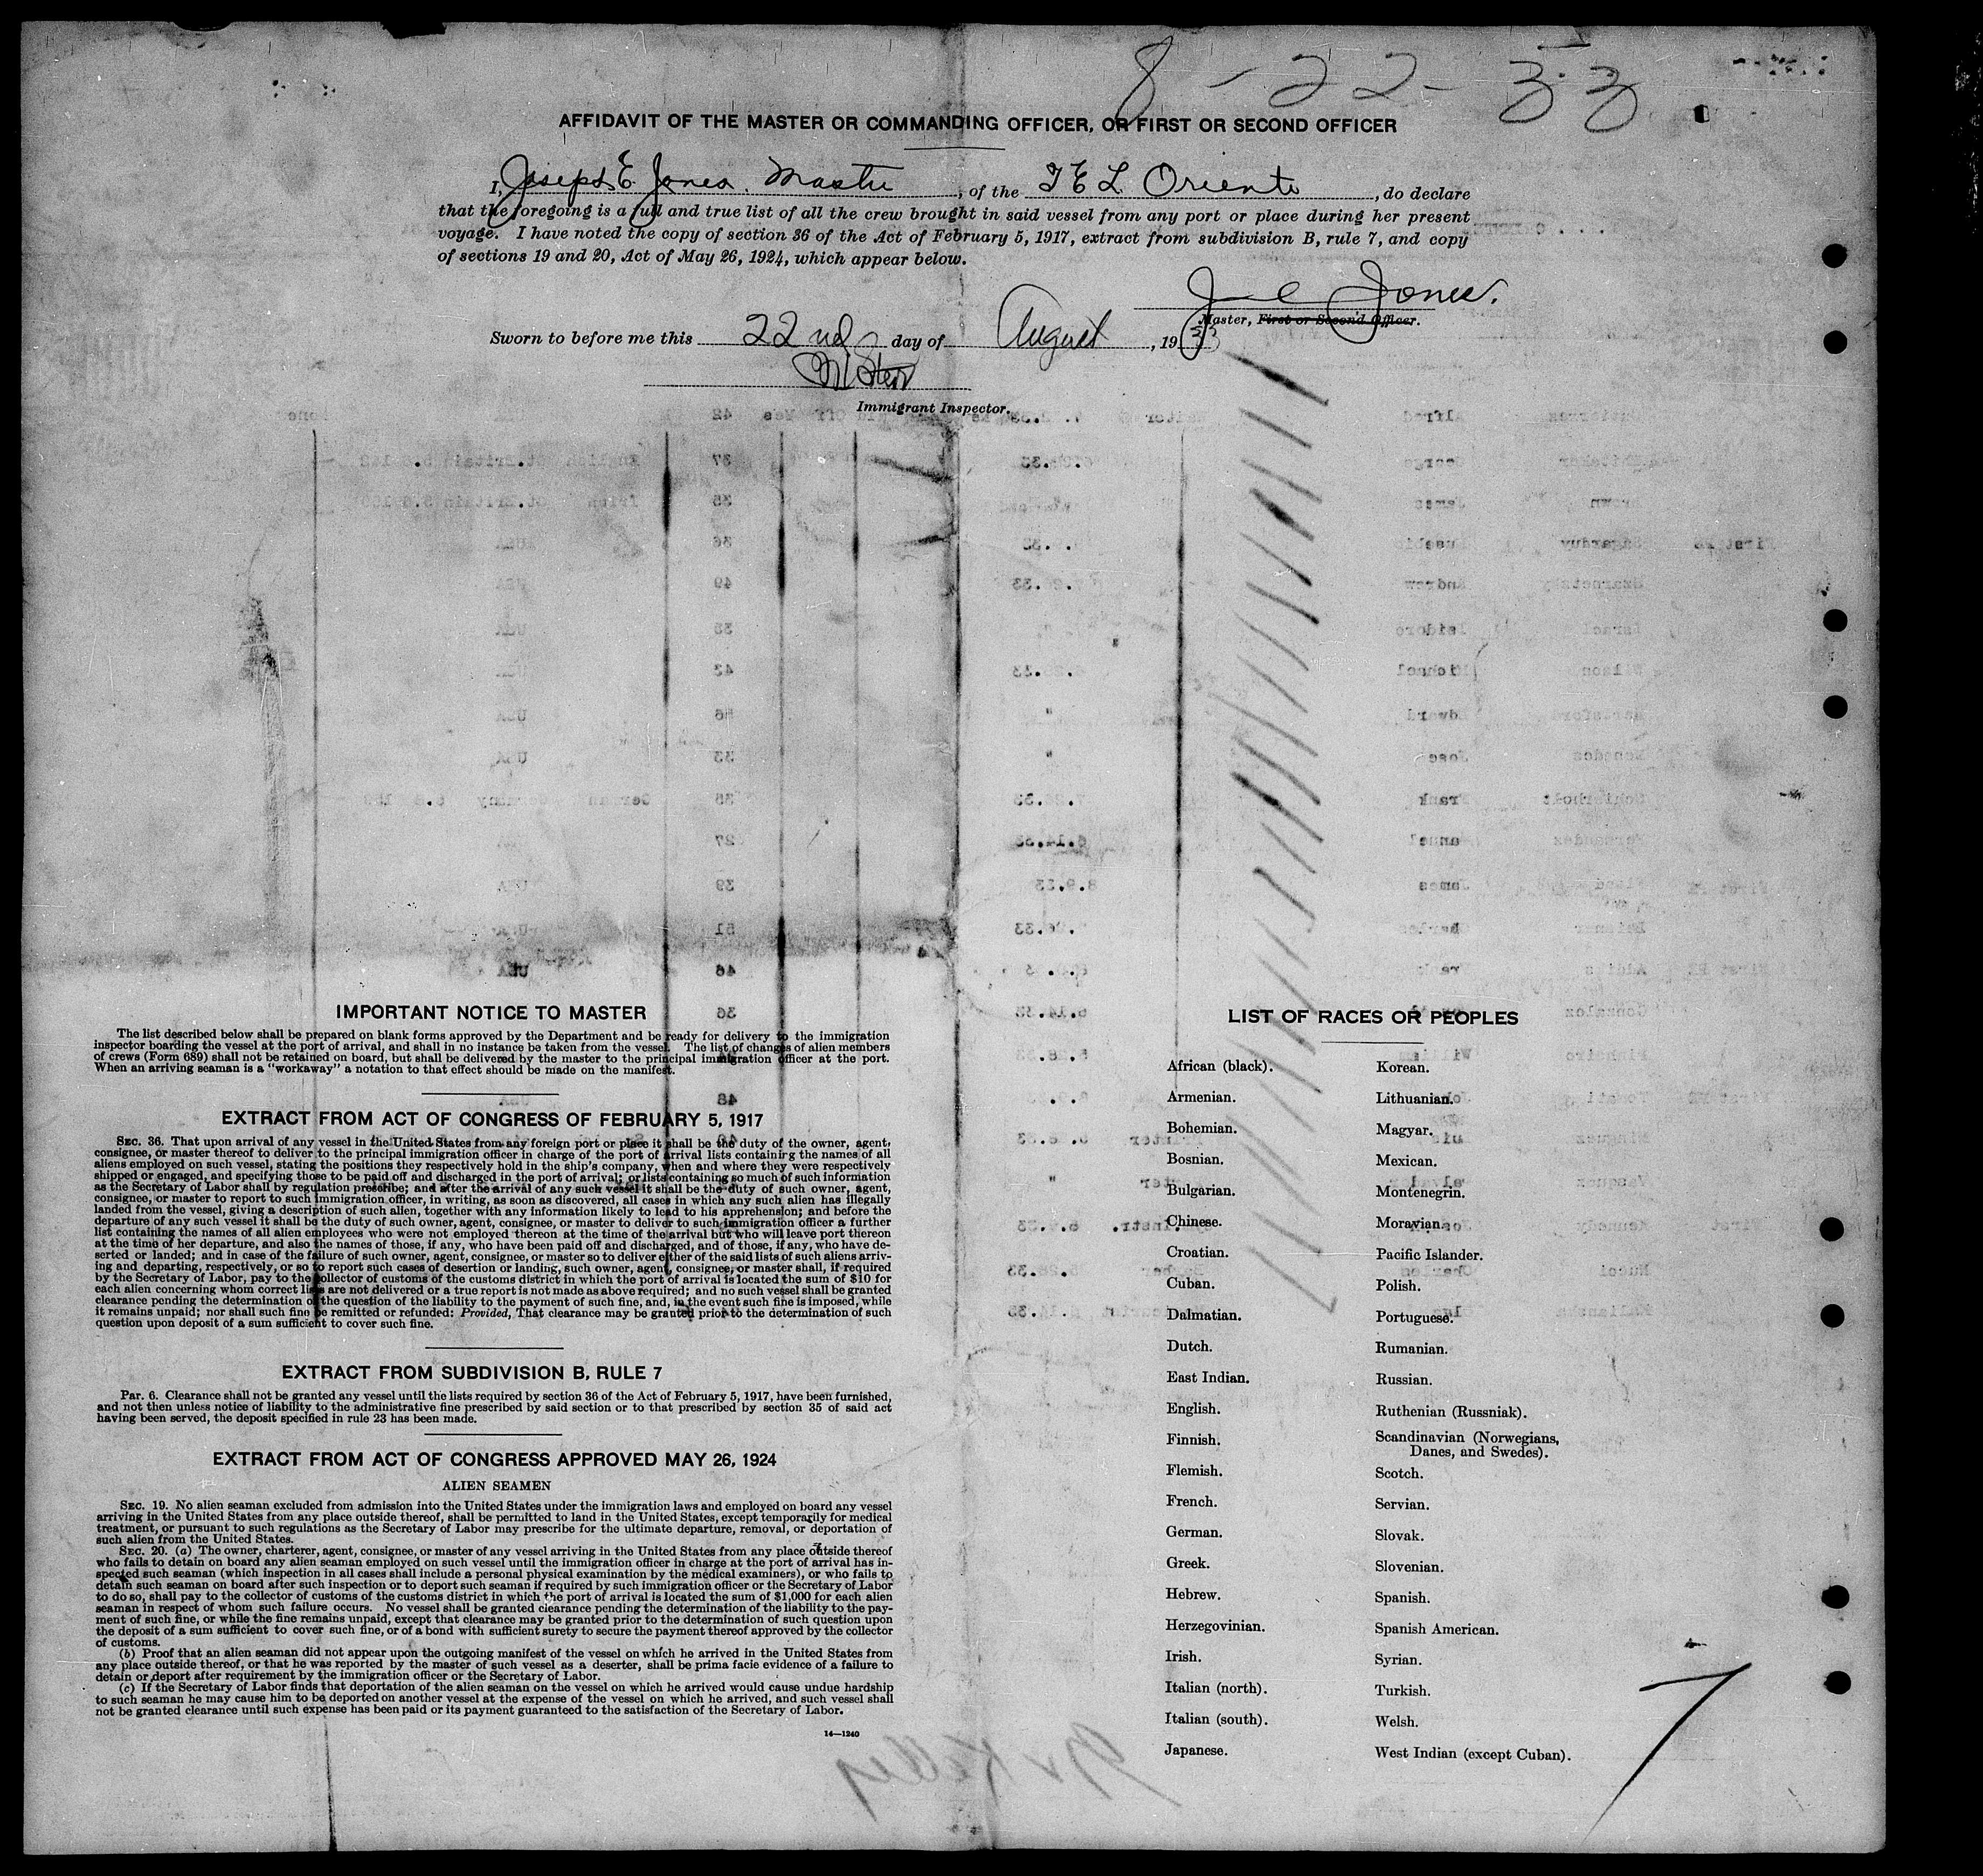 8-22-33
AFFIDAVIT OF THE MASTER OR COMMANDING OFFICER, OR FIRST OR SECOND OFFICER
I, Joseph E. Jones. Master, of the T E L Oriente, do declare
that the foregoing is a full and true list of all the crew brought in said vessel from any port or place during her present
voyage. I have noted the copy of section 36 of the Act of February 5, 1917, extract from subdivision B, rule 7, and copy
of sections 19 and 20, Act of May 26, 1924, which appear below.
J E Jones.
Master, First or Second Officer.
Sworn to before me this 22nd day of August, 1933
Immigrant Inspector.
IMPORTANT NOTICE TO MASTER
The list described below shall be prepared on blank forms approved by the Department and be ready for delivery to the immigration
inspector boarding the vessel at the port of arrival, and shall in no instance be taken from the vessel. The list of changes of alien members
of crews (Form 689) shall not be retained on board, but shall be delivered by the master to the principal immigration officer at the port.
When an arriving seaman is a "workaway" a notation to that effect should be made on the manifest.
EXTRACT FROM ACT OF CONGRESS OF FEBRUARY 5, 1917
SEC. 36. That upon arrival of any vessel in the United States from any foreign port or place it shall be the duty of the owner, agent,
consignee, or master thereof to deliver to the principal immigration officer in charge of the port of arrival lists containing the names of all
aliens employed on such vessel, stating the positions they respectively hold in the ship's company, when and where they were respectively
shipped or engaged, and specifying those to be paid off and discharged in the port of arrival; or lists containing so much of such information
as the Secretary of Labor shall by regulation prescribe; and after the arrival of any such vessel it shall be the duty of such owner, agent,
consignee, or master to report to such immigration officer, in writing, as soon as discovered, all cases in which any such alien has illegally
landed from the vessel, giving a description of such alien, together with any information likely to lead to his apprehension; and before the
departure of any such vessel it shall be the duty of such owner, agent, consignee, or master to deliver to such immigration officer a further
list containing the names of all alien employees who were not employed thereon at the time of the arrival but who will leave port thereon
at the time of her departure, and also the names of those, if any, who have been paid off and discharged, and of those, if any, who have de-
serted or landed; and in case of the failure of such owner, agent, consignee, or master so to deliver either of the said lists of such aliens arriv-
ing and departing, respectively, or so to report such cases of desertion or landing, such owner, agent, consignee, or master shall, if required
by the Secretary of Labor, pay to the collector of customs of the customs district in which the port of arrival is located the sum of $10 for
each alien concerning whom correct lists are not delivered or a true report is not made as above required; and no such vessel shall be granted
clearance pending the determination of the question of the liability to the payment of such fine, and, in the event such fine is imposed, while
it remains unpaid; nor shall such fine be remitted or refunded: Provided, That clearance may be granted prior to the determination of such
question upon deposit of a sum sufficient to cover such fine.
EXTRACT FROM SUBDIVISION B, RULE 7
PAR. 6. Clearance shall not be granted any vessel until the lists required by section 36 of the Act of February 5, 1917, have been furnished,
and not then unless notice of liability to the administrative fine prescribed by said section or to that prescribed by section 35 of said act
having been served, the deposit specified in rule 23 has been made.
EXTRACT FROM ACT OF CONGRESS APPROVED MAY 26, 1924
ALIEN SEAMEN
SEC. 19. No alien seaman excluded from admission into the United States under the immigration laws and employed on board any vessel
arriving in the United States from any place outside thereof, shall be permitted to land in the United States, except temporarily for medical
treatment, or pursuant to such regulations as the Secretary of Labor may prescribe for the ultimate departure, removal, or deportation of
such alien from the United States.
SEC. 20. (a) The owner, charterer, agent, consignee, or master of any vessel arriving in the United States from any place outside thereof
who fails to detain on board any alien seaman employed on such vessel until the immigration officer in charge at the port of arrival has in-
spected such seaman (which inspection in all cases shall include a personal physical examination by the medical examiners), or who fails to
detain such seaman on board after such inspection or to deport such seaman if required by such immigration officer or the Secretary of Labor
to do so, shall pay to the collector of customs of the customs district in which the port of arrival is located the sum of $1,000 for each alien
seaman in respect of whom such failure occurs. No vessel shall be granted clearance pending the determination of the liability to the pay-
ment of such fine, or while the fine remains unpaid, except that clearance may be granted prior to the determination of such question upon
the deposit of a sum sufficient to cover such fine, or of a bond with sufficient surety to secure the payment thereof approved by the collector
of customs.
(b) Proof that an alien seaman did not appear upon the outgoing manifest of the vessel on which he arrived in the United States from
any place outside thereof, or that he was reported by the master of such vessel as a deserter, shall be prima facie evidence of a failure to
detain or deport after requirement by the immigration officer or the Secretary of Labor.
(c) If the Secretary of Labor finds that deportation of the alien seaman on the vessel on which he arrived would cause undue hardship
to such seaman he may cause him to be deported on another vessel at the expense of the vessel on which he arrived, and such vessel shall
not be granted clearance until such expense has been paid or its payment guaranteed to the satisfaction of the Secretary of Labor.
14—1240
LIST OF RACES OR PEOPLES
African (black).
Armenian.
Bohemian.
Bosnian.
Bulgarian.
Chinese.
Croatian.
Cuban.
Dalmatian.
Dutch.
East Indian.
English.
Finnish.
Flemish.
French.
German.
Greek.
Hebrew.
Herzegovinian.
Irish.
Italian (north).
Italian (south).
Japanese.
Korean.
Lithuanian.
Magyar.
Mexican.
Montenegrin.
Moravian.
Pacific Islander.
Polish.
Portuguese.
Rumanian.
Russian.
Ruthenian (Russniak).
Scandinavian (Norwegians,
Danes, and Swedes).
Scotch.
Servian.
Slovak.
Slovenian.
Spanish.
Spanish American.
Syrian.
Turkish.
Welsh.
West Indian (except Cuban).
7